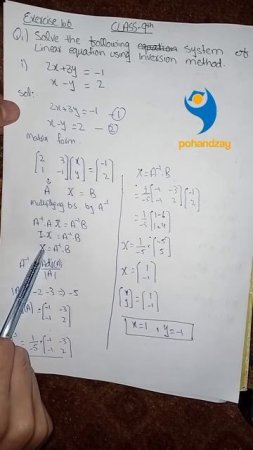 Exercise 1.6
CLASS-9th
Q.1) Solve the following system of
Linear equation using inversion method.
i) 2x+3y = -1
x-y = 2
Sol:
2x+3y = -1 —①
x-y = 2 —②
Matrix form.
[2 3
1 -1] [x
y] = [-1
2]
A X = B
multiplying b/s by A⁻¹
A⁻¹.A.X = A⁻¹B
I.X = A⁻¹.B
X = A⁻¹.B
A⁻¹ = Adj(A)
|A|
-2-3 => -5
(A) = [-1 -3
-1 2]
= 1/-5 . [-1 -3
-1 2]
pohandzay
X = A⁻¹B
= 1/-5 [-1 -3
-1 2] [-1
2]
= 1/-5 [1-6
1+4]
X = 1/-5 [-5
5]
X = [1
-1]
[x
y] = [1
-1]
x=1 , y=-1